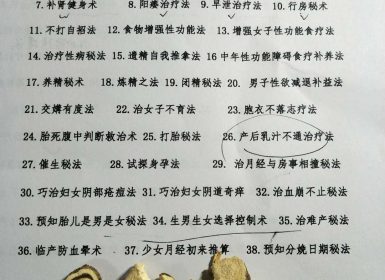 7. 补肾健身术 8. 阳痿治疗法 9. 早泄治疗法 10. 行房秘术
11. 不打自招法 12. 食物增强性功能法 13. 增强女子性功能食疗法
14. 治疗性病秘法 15. 遗精自我推拿法 16 中年性功能障碍食疗补养法
17. 养精秘术 18. 炼精之法 19. 闭精秘法 20. 男子性欲减退补益法
21. 交媾有度法 22. 治女子不育法 23. 胞衣不落志疗法
24. 胎死腹中判断救治术 25. 打胎秘法 26. 产后乳汁不通治疗法
27. 催生秘法 28. 试探身孕法 29. 治月经与房事相撞秘法
30. 巧治妇女阴部疮痘法 31. 巧治妇女阴道奇痒 32. 治血崩不止秘法
33. 预知胎儿是男是女秘法 34. 生男生女选择控制术 35. 治难产秘法
36. 临产防血晕术 37. 少女月经初来推算 38. 预知分娩日期秘法